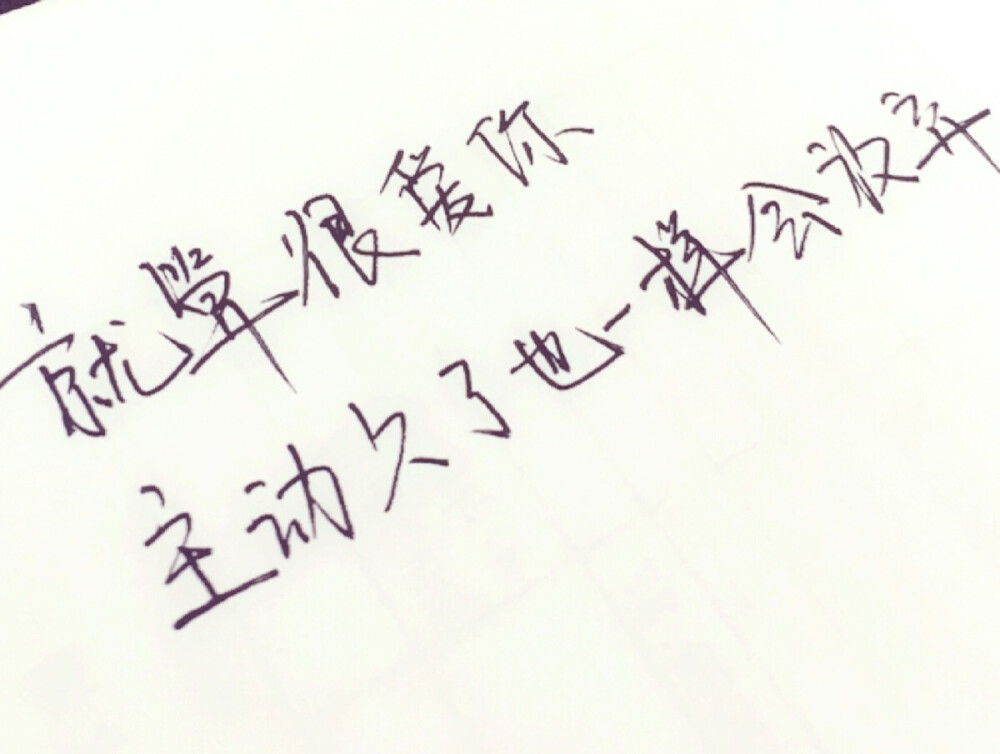 就算很爱你
主动久了也一样会放弃